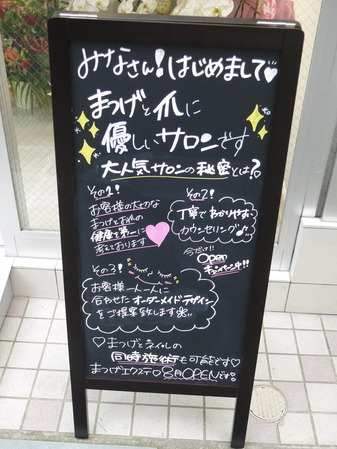 みなさん!はじめまして♡
まつげと爪に
優しいサロンです
大人気サロンの秘密とは?
その1!
お客様の大切な
まつげとお爪の
健康を第一に
考えております
その2!
丁寧でわかりやすい
カウンセリング♪
今だけ!!
Open
キャンペーン中!!
その3!
お客様一人一人に
合わせたオーダーメイドデザイン
をご提案致します
♡まつげとネイルの
同時施術も可能です♡
まつげエクステ♡8月OPENです。